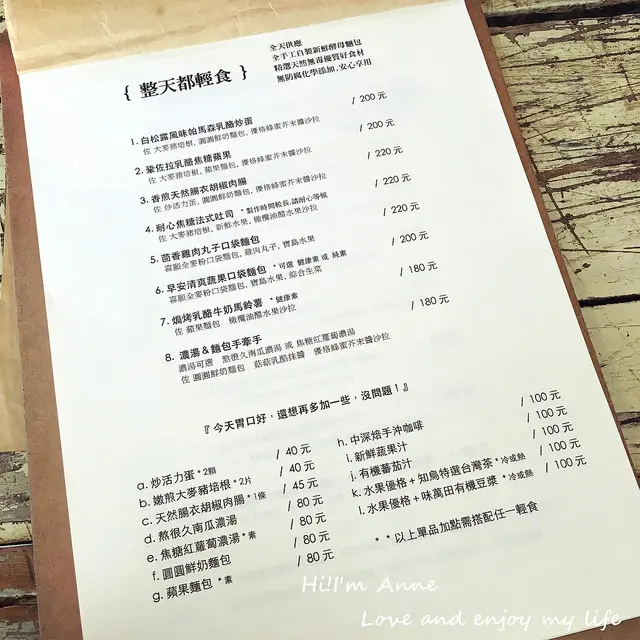 全天供應
全手工自製新鮮酵母麵包
精選天然無毒優質好食材
無防腐化學添加,安心享用
{ 整天都輕食 }
1. 白松露風味帕馬森乳酪炒蛋 / 200 元
佐 大麥豬培根, 圓圓鮮奶麵包, 優格蜂蜜芥末醬沙拉
2. 鞏佐拉乳酪焦糖蘋果 / 200 元
佐 大麥豬培根, 蘋果麵包, 優格蜂蜜芥末醬沙拉
3. 香煎天然腸衣胡椒肉腸 / 220 元
佐 炒活力蛋, 圓圓鮮奶麵包, 優格蜂蜜芥末醬沙拉
4. 耐心焦糖法式吐司 *製作時間較長,請耐心等候 / 220 元
佐 大麥豬培根, 新鮮水果, 橄欖油醋水果沙拉
5. 茴香雞肉丸子口袋麵包 / 220 元
喜願全麥粉口袋麵包, 雞肉丸子, 寶島水果
6. 早安清爽蔬果口袋麵包 *可選 健康素 或 純素 / 200 元
喜願全麥粉口袋麵包, 寶島水果, 綜合生菜
7. 焗烤乳酪牛奶馬鈴薯 *健康素 / 180 元
佐 蘋果麵包 橄欖油醋水果沙拉
8. 濃湯&麵包手牽手 / 180 元
濃湯可選 熬很久南瓜濃湯 或 焦糖紅蘿蔔濃湯
佐 圓圓鮮奶麵包 菇菇乳酪抹醬 優格蜂蜜芥末醬沙拉
『 今天胃口好,還想再多加一些,沒問題!』
a. 炒活力蛋 *2顆 / 40 元
b. 嫩煎大麥豬培根 *2片 / 40 元
c. 天然腸衣胡椒肉腸 *1條 / 45 元
d. 熬很久南瓜濃湯 / 80 元
e. 焦糖紅蘿蔔濃湯 *素 / 80 元
f. 圓圓鮮奶麵包 / 80 元
g. 蘋果麵包 *素 / 80 元
h. 中深焙手沖咖啡 / 100 元
i. 新鮮蔬果汁 / 100 元
j. 有機蕃茄汁 / 100 元
k. 水果優格 + 知鳥特選台灣茶 *冷或熱 / 100 元
l. 水果優格 + 味萬田有機豆漿 *冷或熱 / 100 元
* * 以上單品加點需搭配任一輕食
Hi!I'm Anne
Love and enjoy my life